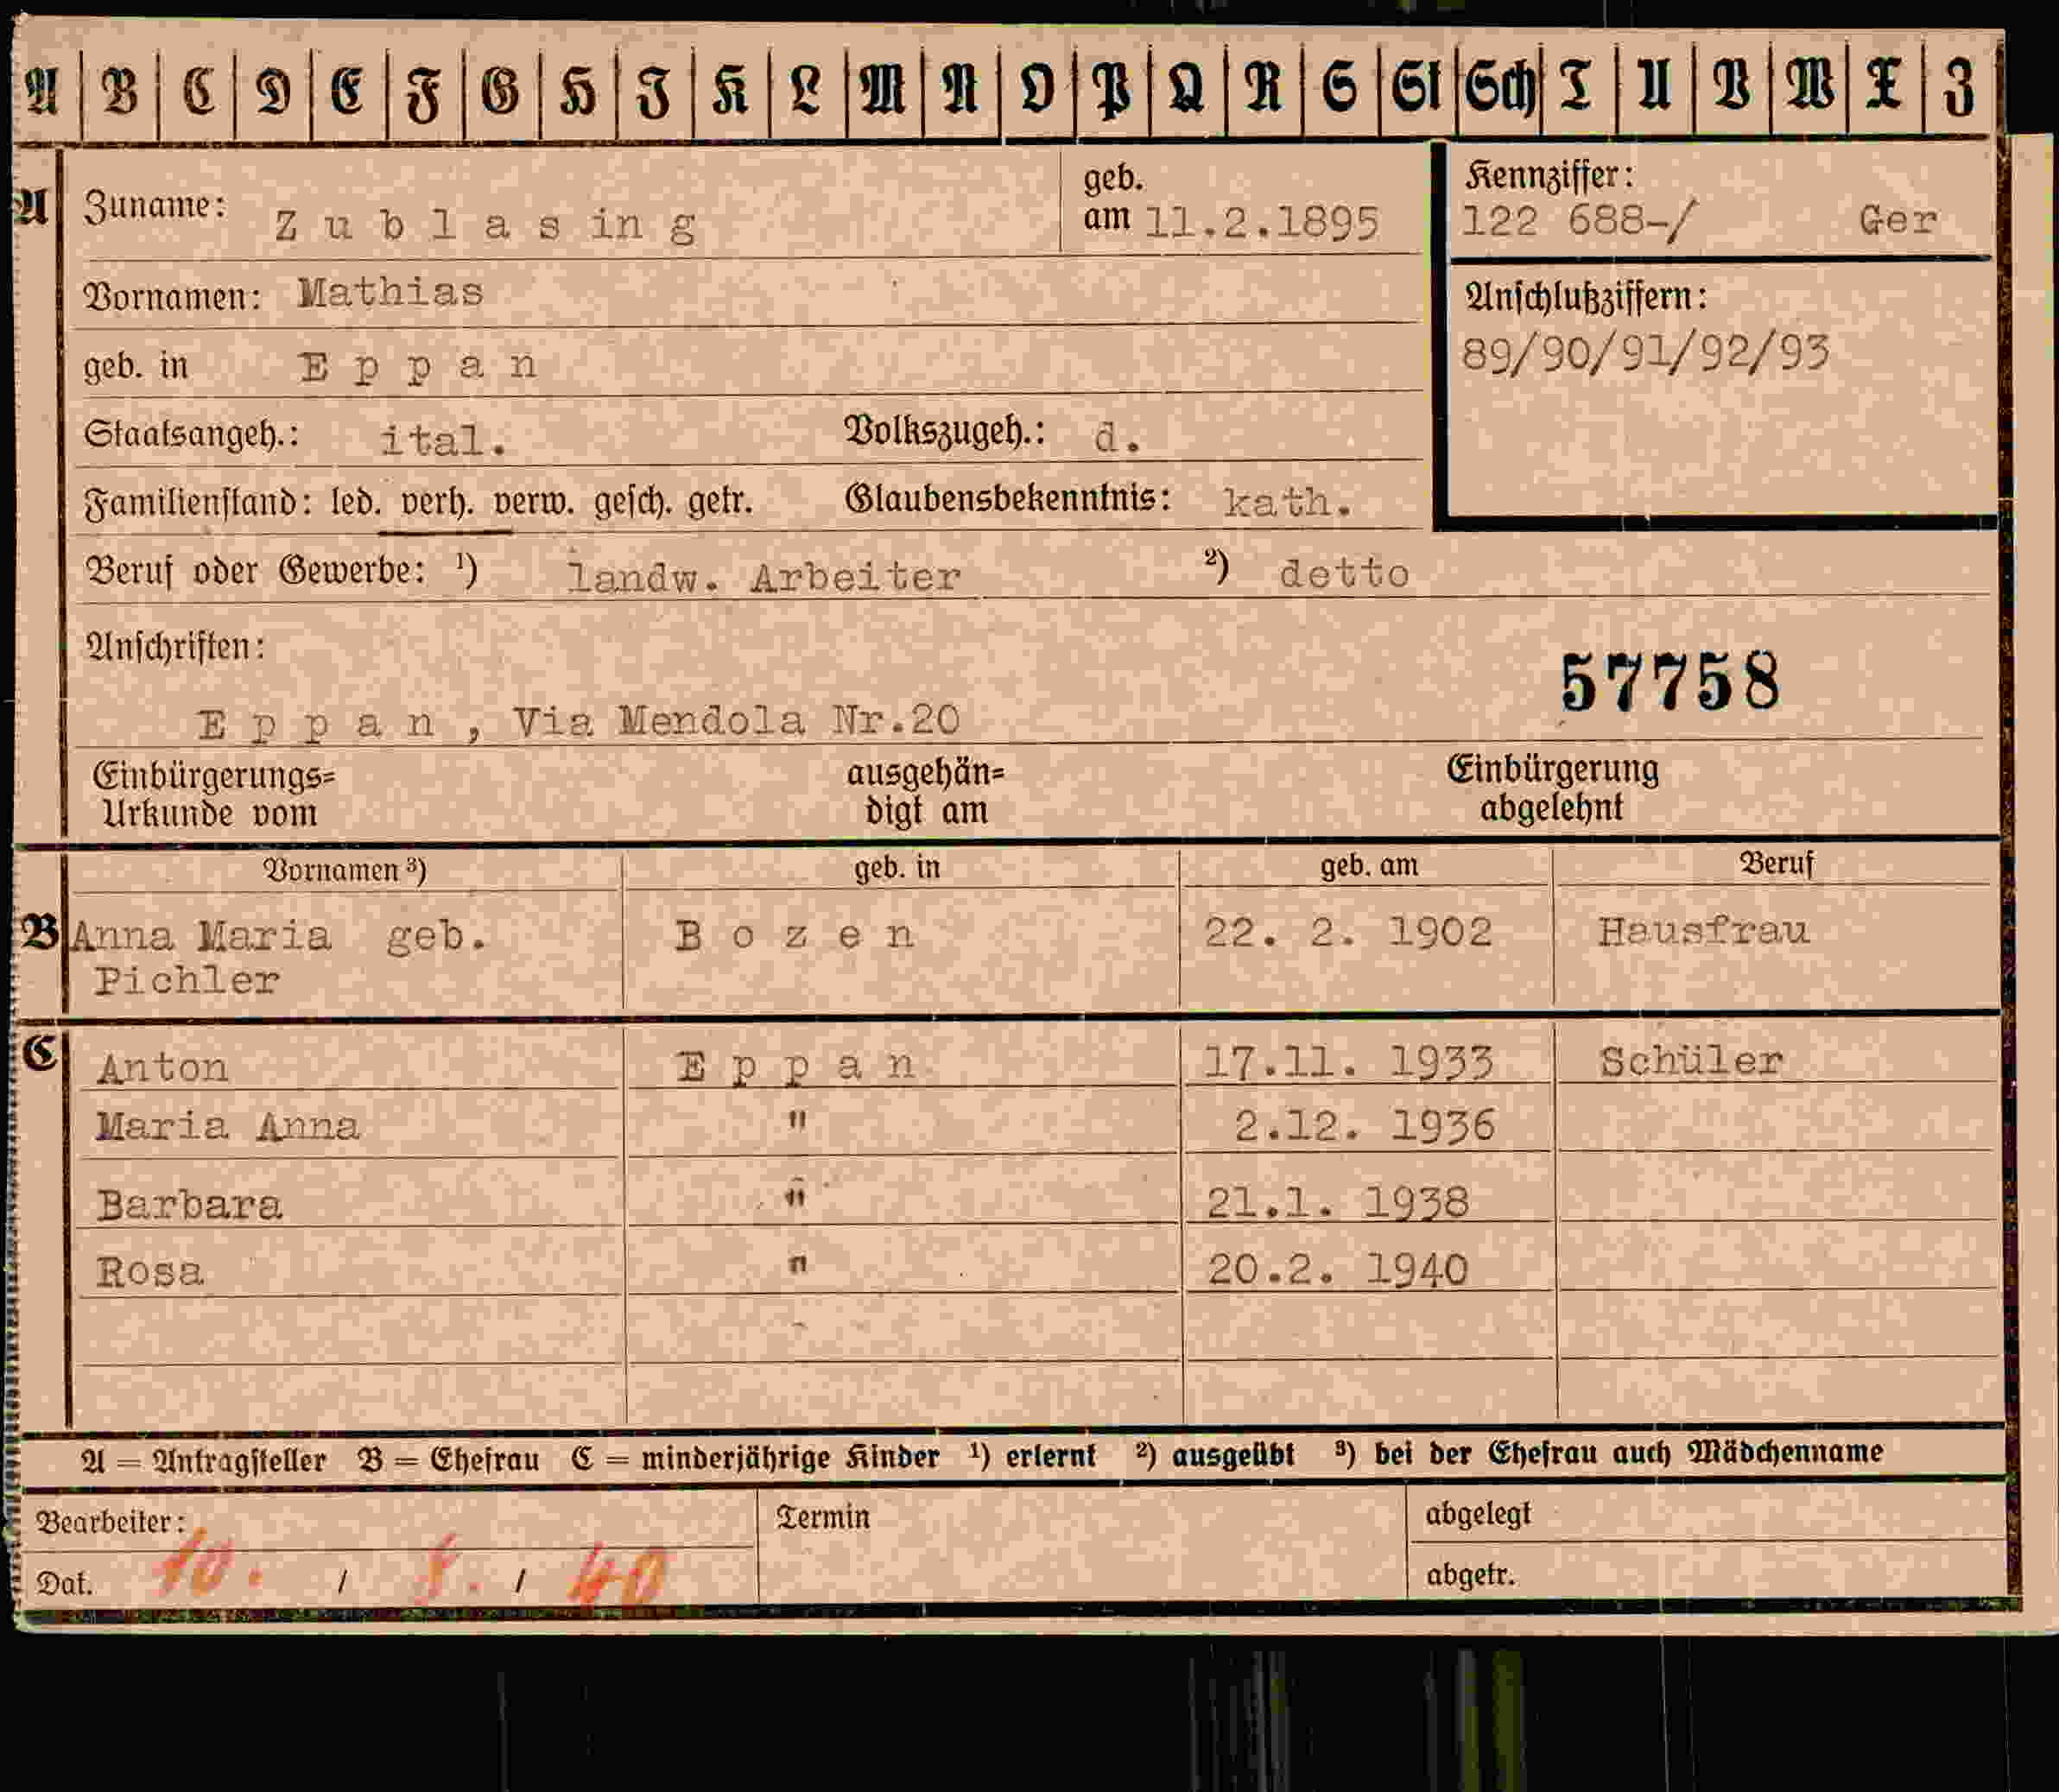 A B C D E F G H J K L M N O P Q R S St Sch T U V W X Z
A Zuname: Zublasing geb. am 11.2.1895
Kennziffer: 122 688-/ Ger
Vornamen: Mathias
Anschlußziffern:
89/90/91/92/93
geb. in Eppan
Staatsangeh.: ital. Volkszugeh.: d.
Familienstand: led. verh. verw. gesch. getr. Glaubensbekenntnis: kath.
Beruf oder Gewerbe: 1) landw. Arbeiter 2) detto
Anschriften:
57758
Eppan, Via Mendola Nr.20
Einbürgerungs= ausgehän= Einbürgerung
Urkunde vom digt am abgelehnt
Vornamen 3) geb. in geb. am Beruf
B Anna Maria geb. Bozen 22. 2. 1902 Hausfrau
Pichler
C Anton Eppan 17.11. 1933 Schüler
Maria Anna " 2.12. 1936
Barbara " 21.1. 1938
Rosa " 20.2. 1940
A = Antragsteller B = Ehefrau C = minderjährige Kinder 1) erlernt 2) ausgeübt 3) bei der Ehefrau auch Mädchenname
Bearbeiter: Termin abgelegt
Dat. 10. / / 40 abgetr.